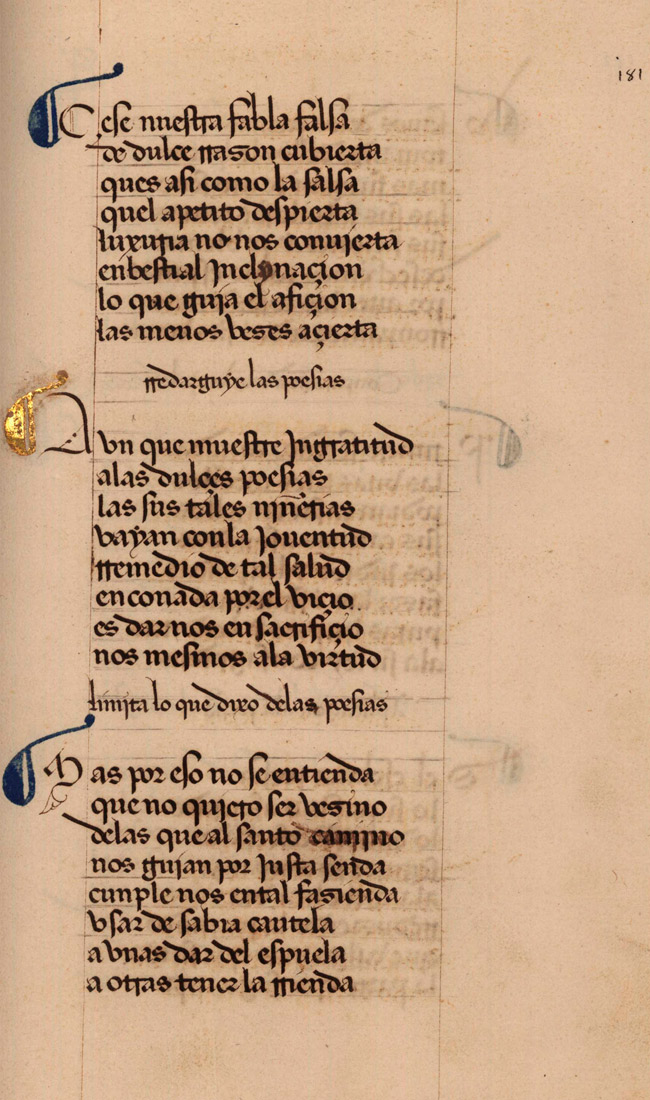 181
Cese nuestra fabla falsa
de dulce rrason cubierta
ques asi como la salsa
quel apetito despierta
luxuria no nos conuierta
enbestial Inclynaçion
lo que guia el afiçion
las menos veses açierta
rredarguye las poesias
Avn que muestre Ingratitud
alas dulçes poesias
las sus tales niñerias
vayan conla Jouentud
rremedio de tal salud
enconada por el viçio
es dar nos en sacrifiçio
nos mesmos ala virtud
limita lo que dixo delas poesias
Mas por eso no se entienda
que no quiero ser vesino
delas que al santo camino
nos guian por Justa senda
cunple nos ental fasienda
vsar de sabia cautela
a vnas dar del espuela
a otras tener la rrienda